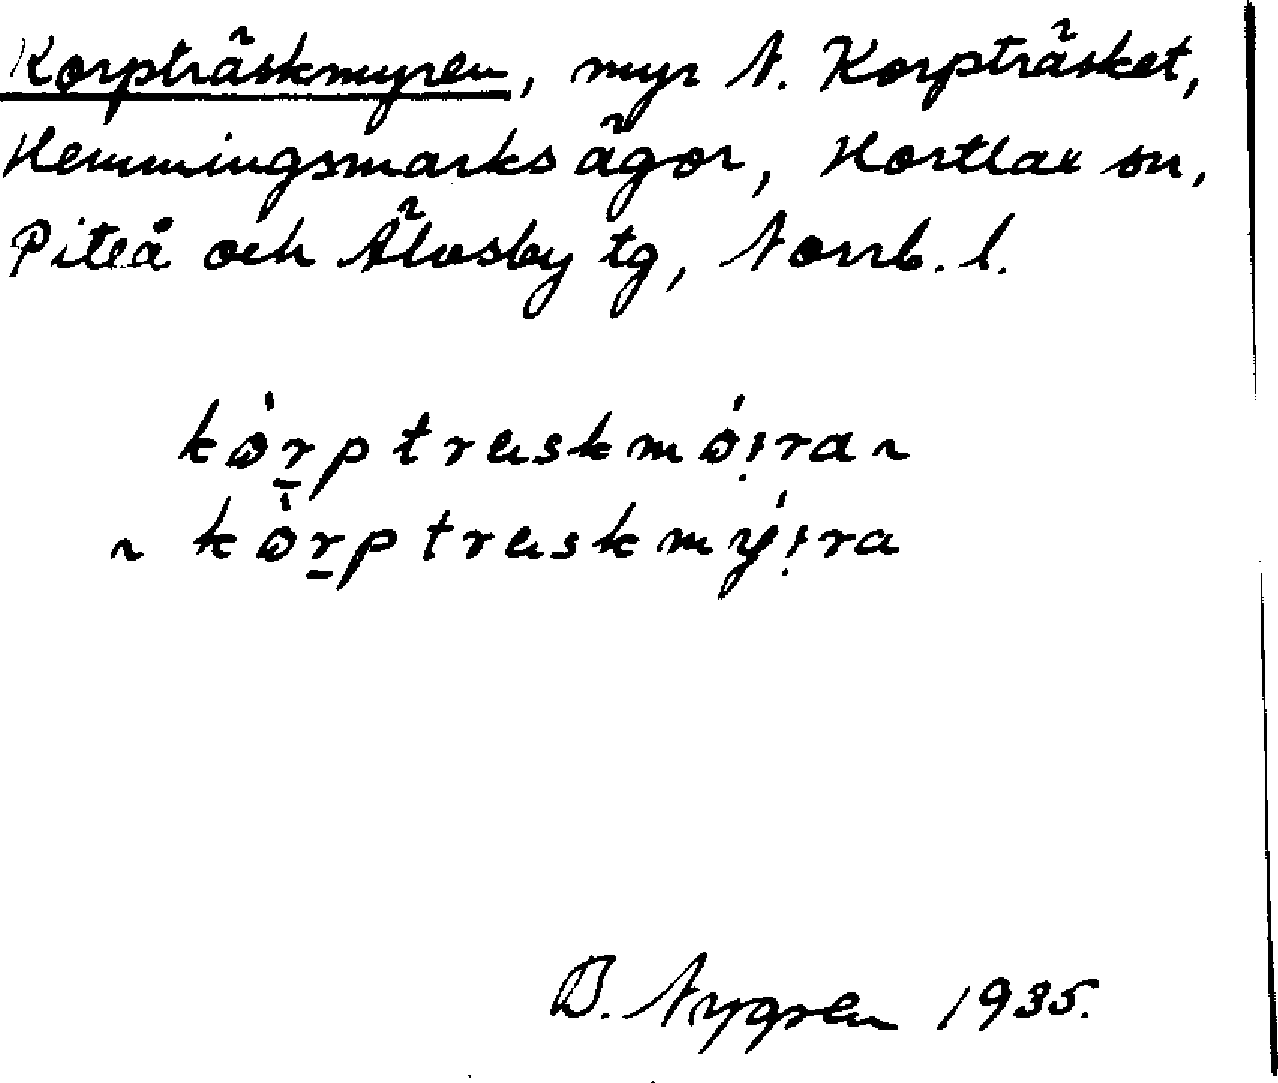 Korpträskmyren, myr N. Korpträsket,
Hemmingsmarks ägor, Hortlax sn,
Piteå och Älvsby tg, Norrb. l.
kòr̠ptræskmó̩ira ~
~ kòr̠ptræskmýira
B. Nygren 1935.